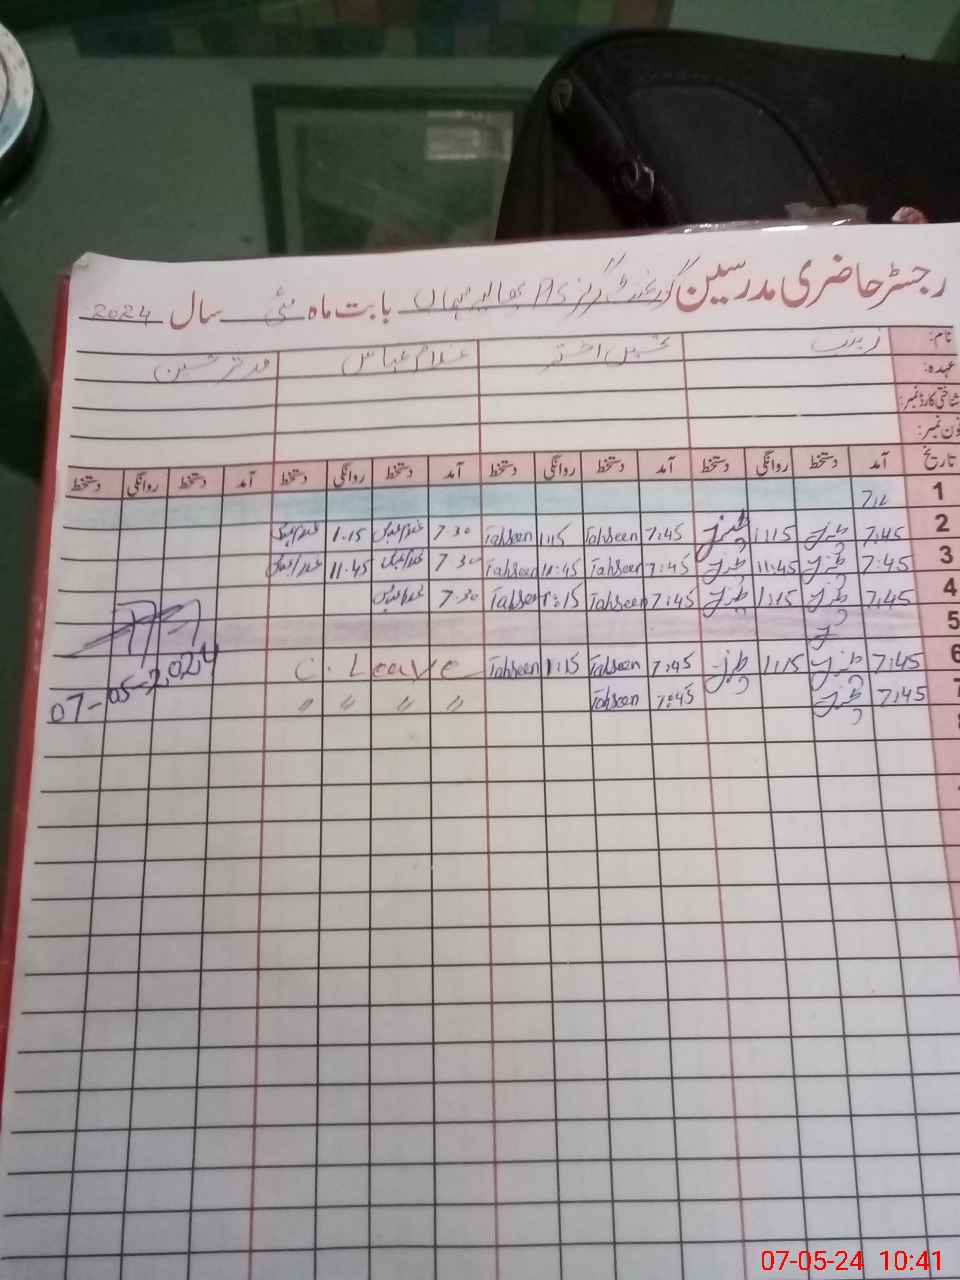 رجسٹر حاضری مدرسین گورنمنٹ گرلز بابت ماہ مئی سال 2024
نام: زینب تحسین اختر غلام عباس
عہدہ:
شناختی کارڈ نمبر:
فون نمبر:
تاریخ آمد دستخط روانگی دستخط آمد دستخط روانگی دستخط آمد دستخط روانگی دستخط آمد دستخط روانگی دستخط
1
2 7:45 1:15 7:45 Tahseen 1:15 Tahseen 7.30 غلام عباس 1.15 غلام عباس
3 7:45 11:45 7:45 Tahseen 11:45 Tahseen 7.30 غلام عباس 11.45 غلام عباس
4 7:45 1:15 7:45 Tahseen 1:15 Tahseen 7.30 غلام عباس
5
6 7:45 1:15 7:45 Tahseen 1:15 Tahseen C. Leave
7 7:45 7:45 Tahseen " " " "
07-05-2024
07-05-24 10:41